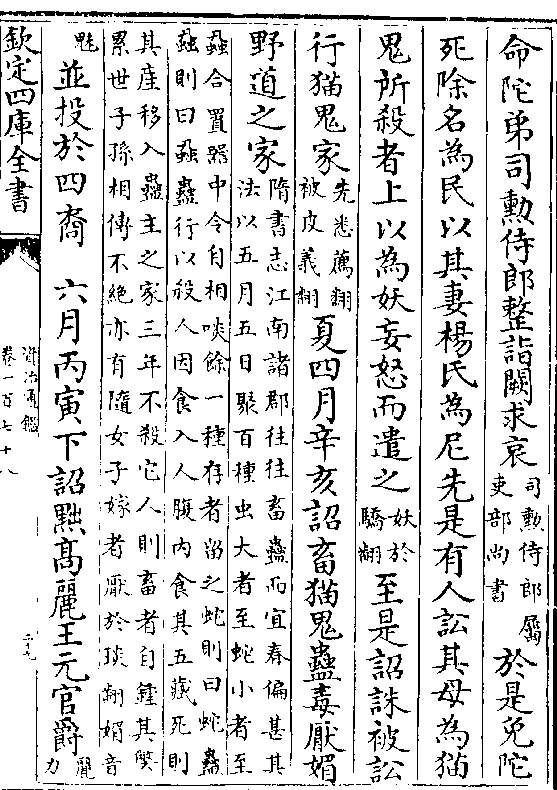 命陀弟司勲侍郎整詣闕求哀司勲侍郎屬吏部尚書於是免陀
死除名為民以其妻楊氏為尼先是有人訟其母為猫
鬼所殺者上以為妖妄怒而遣之妖於驕翻至是詔誅被訟
行猫鬼家先悉薦翻被皮義翻夏四月辛亥詔畜猫鬼蠱毒厭媚
野道之家隋書志江南諸郡往往畜蠱而宜春偏甚其法以五月五日聚百種虫大者至蛇小者至
蝨合置器中令自相啖餘一種存者留之蛇則曰蛇蠱蝨則曰蝨蠱行以殺人因食入人腹内食其五藏死則
其産移入蠱主之家三年不殺它人則畜者自鍾其弊累世子孫相傳不絶亦有隨女子嫁者厭於琰翻媚音
魅並投於四裔　六月丙寅下詔黜高麗王元官爵麗力
欽定四庫全書
資治通鑑
卷一百七十八